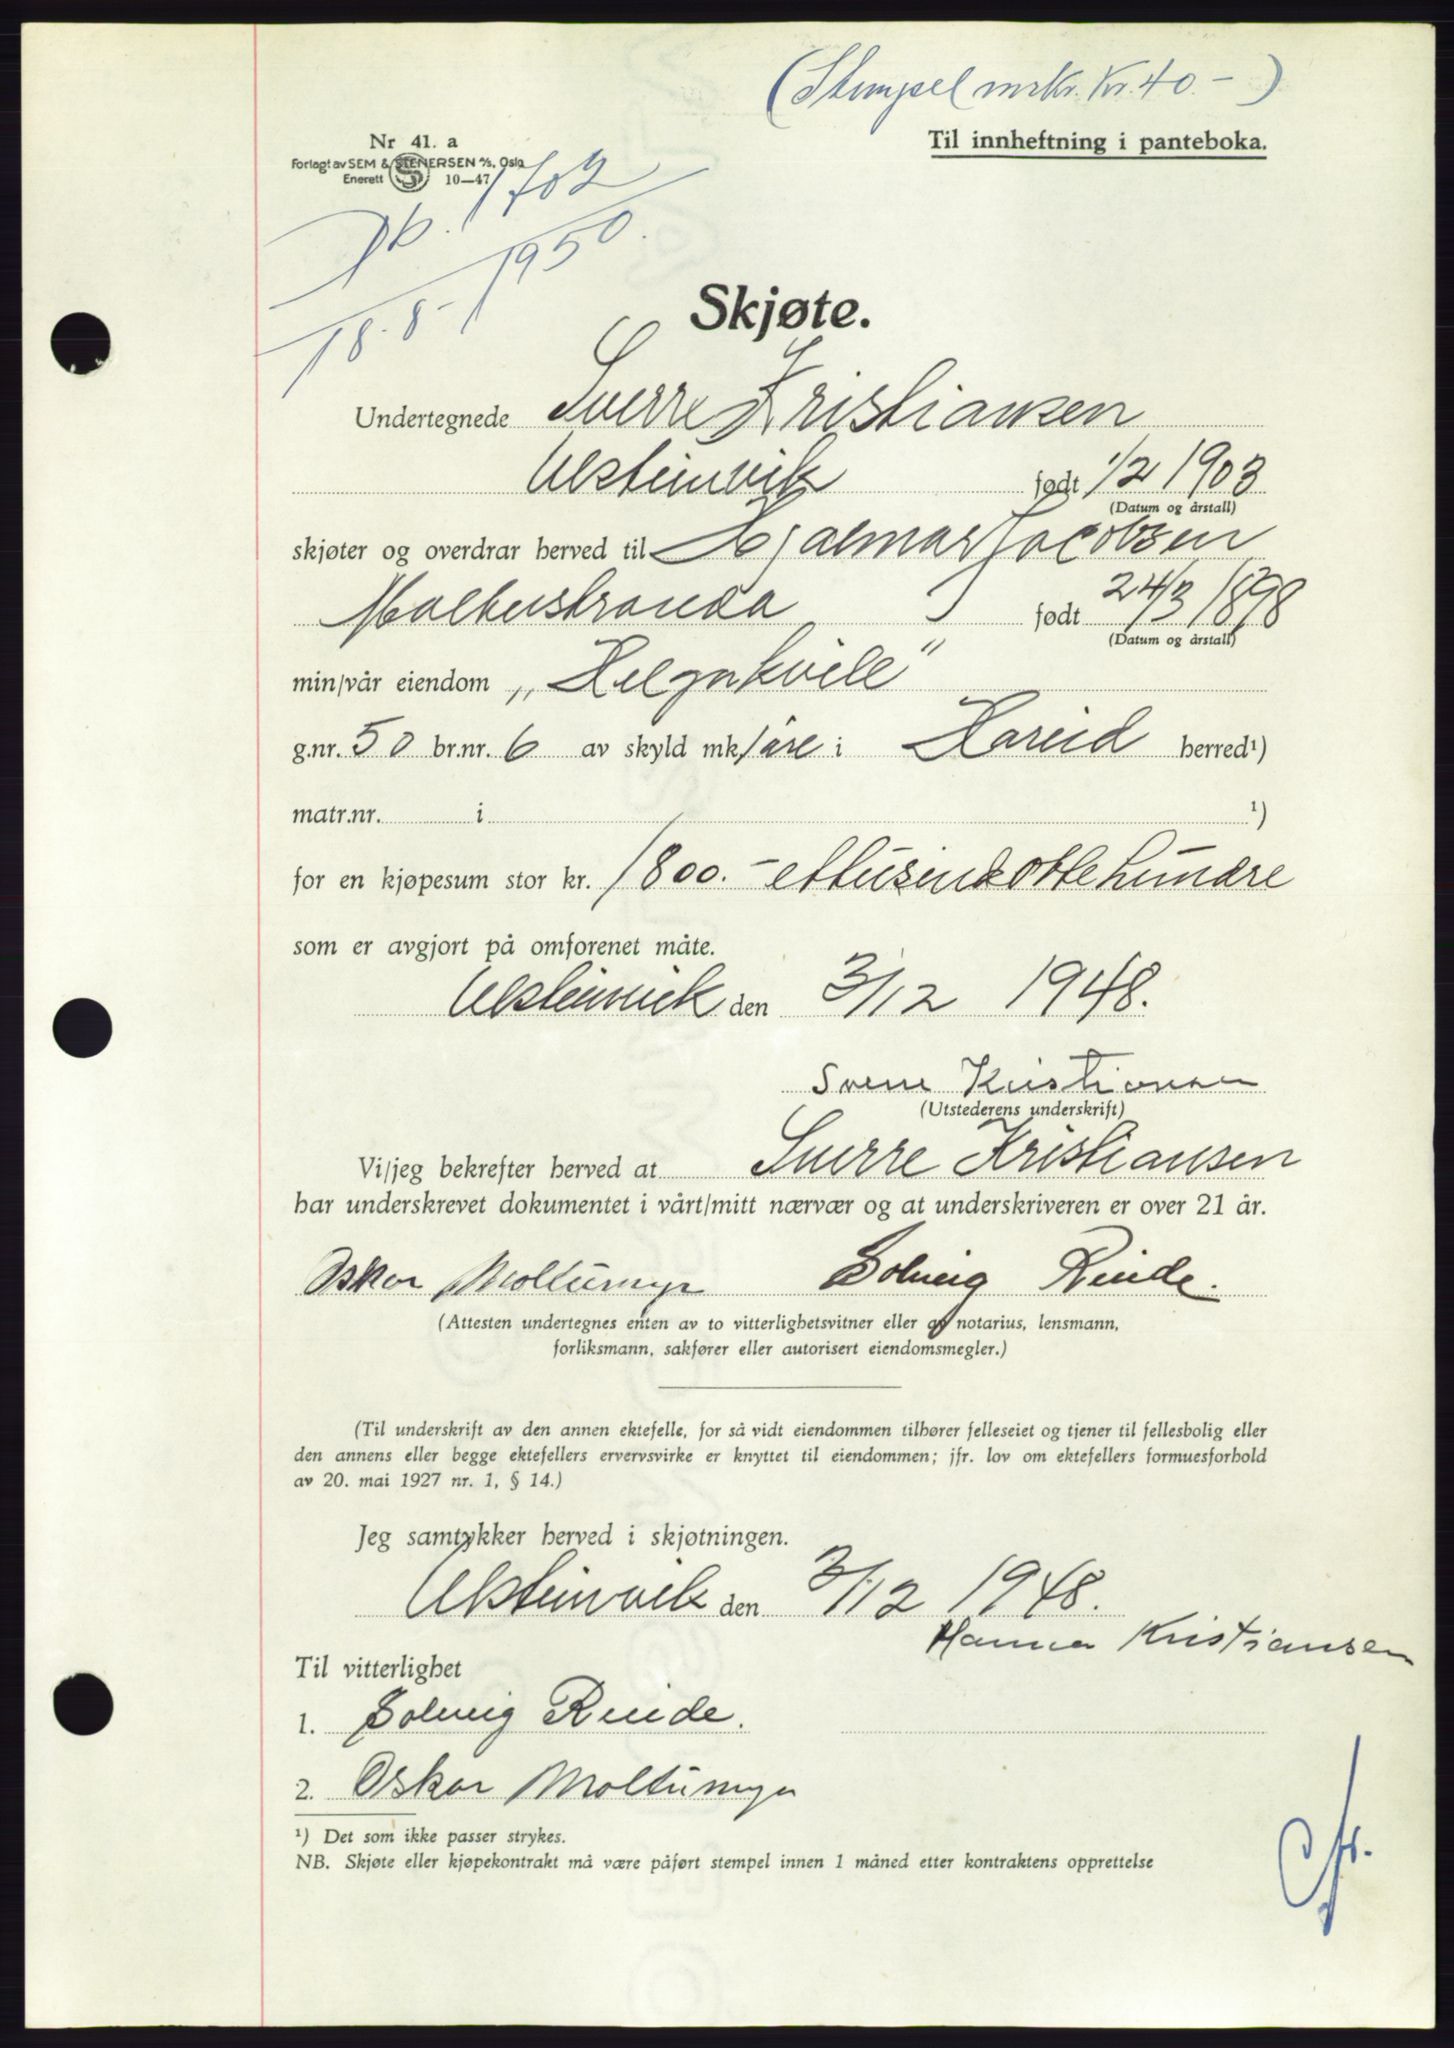 (Stempel mrk. Kr. 40.-)
Nr 41. a
Til innheftning i panteboka.
Forlagt av SEM & STENERSEN A/S, Oslo
Enerett 10—47
Db. 1702
18.8-1950.
Skjøte.
Undertegnede Sverre Kristiansen
Ulsteinvik født 1/2 1903
(Datum og årstall)
skjøter og overdrar herved til Hjalmar Jacobsen
født 24/3 1898
(Datum og årstall)
min/vår eiendom „Helgakvile"
g.nr. 50 br.nr. 6 av skyld mk 1 øre i Hareid herred¹)
matr.nr. i ¹)
for en kjøpesum stor kr. 1800.- ettusindottehundre
som er avgjort på omforenet måte.
Ulsteinvik den 3/12 1948.
Sverre Kristiansen
(Utstederens underskrift)
Vi/jeg bekrefter herved at Sverre Kristiansen
har underskrevet dokumentet i vårt/mitt nærvær og at underskriveren er over 21 år.
Oskar Moltumyr Solveig Reide.
(Attesten undertegnes enten av to vitterlighetsvitner eller av notarius, lensmann,
forliksmann, sakfører eller autorisert eiendomsmegler.)
(Til underskrift av den annen ektefelle, for så vidt eiendommen tilhører felleseiet og tjener til fellesbolig eller
den annens eller begge ektefellers ervervsvirke er knyttet til eiendommen; jfr. lov om ektefellers formuesforhold
av 20. mai 1927 nr. 1, § 14.)
Jeg samtykker herved i skjøtningen.
Ulsteinvik den 3/12 1948.
Hanna Kristiansen
Til vitterlighet
1. Solveig Reide.
2. Oskar Moltumyr
¹) Det som ikke passer strykes.
NB. Skjøte eller kjøpekontrakt må være påført stempel innen 1 måned etter kontraktens opprettelse